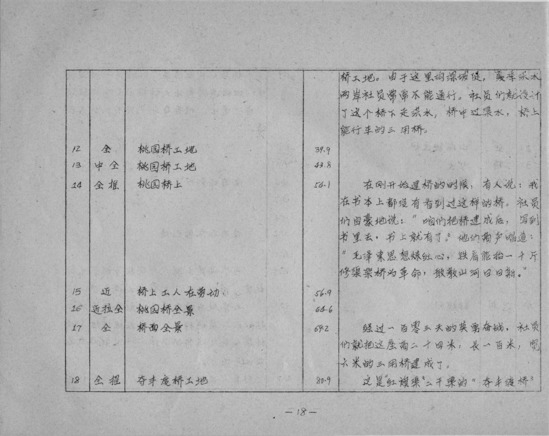 桥工地。由于这里河深坡陡，
两岸社员常常不能通行。社员们就设计
了这个桥下走洪水，桥中过渠水，桥上
能行车的三用桥。
12 全 桃园桥工地 39.9
13 中全 桃园桥工地 43.8
14 全摇 桃园桥上
在刚开始建桥的时候，有人说：我
在书本上都没有看到过这样的桥。社员
们自豪地说："咱们把桥建成后，写到
书里去，书上就有了。"他们高声唱道：
"毛泽东思想炼红心，铁肩能抬一千斤
修渠架桥为革命，
15 近 桥上工人在劳动 56.9
16 近拉全 桃园桥全景
17 全 桥面全景
经过一百零五天的英勇奋战，社员
们就把这座高二十四米，长一百米，宽
六米的三用桥建成了。
18 全摇 夺丰渡桥工地
这是"红旗渠"二干渠的"夺丰渡桥"
—18—